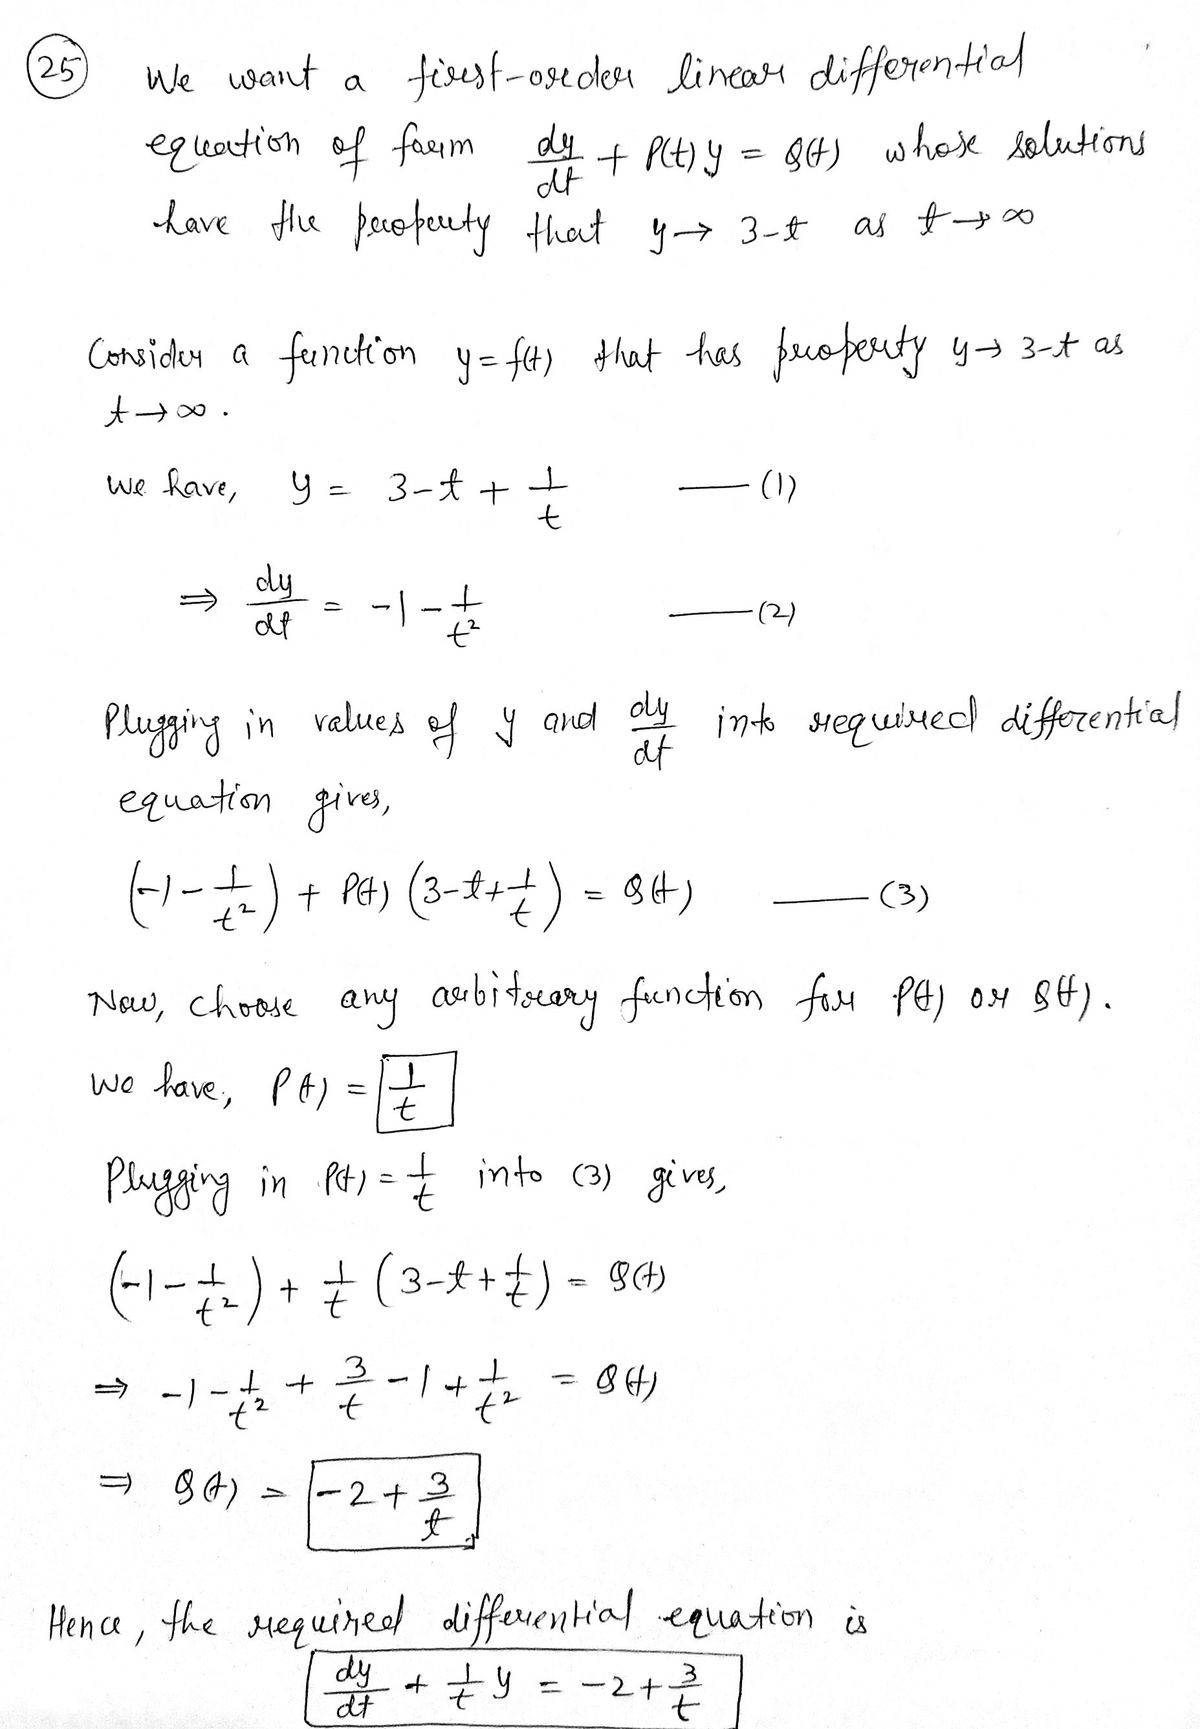 25 We want a first-order linear differential
equation of form dy/dt + P(t) y = Q(t) whose solutions
have the property that y → 3-t as t → ∞
Consider a function y = f(t) that has property y → 3-t as
t → ∞ .
We have, y = 3-t + 1/t —— (1)
⇒ dy/dt = -1 - 1/t² —— (2)
Plugging in values of y and dy/dt into required differential
equation gives,
(-1 - 1/t²) + P(t) (3-t+1/t) = Q(t) —— (3)
Now, choose any arbitrary function for P(t) or Q(t).
We have, P(t) = 1/t
Plugging in P(t) = 1/t into (3) gives,
(-1 - 1/t²) + 1/t (3-t+1/t) = Q(t)
⇒ -1 - 1/t² + 3/t - 1 + 1/t² = Q(t)
⇒ Q(t) = -2 + 3/t
Hence, the required differential equation is
dy/dt + 1/t y = -2 + 3/t